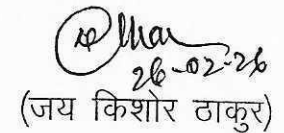 26-02-26
(जय किशोर ठाकुर)